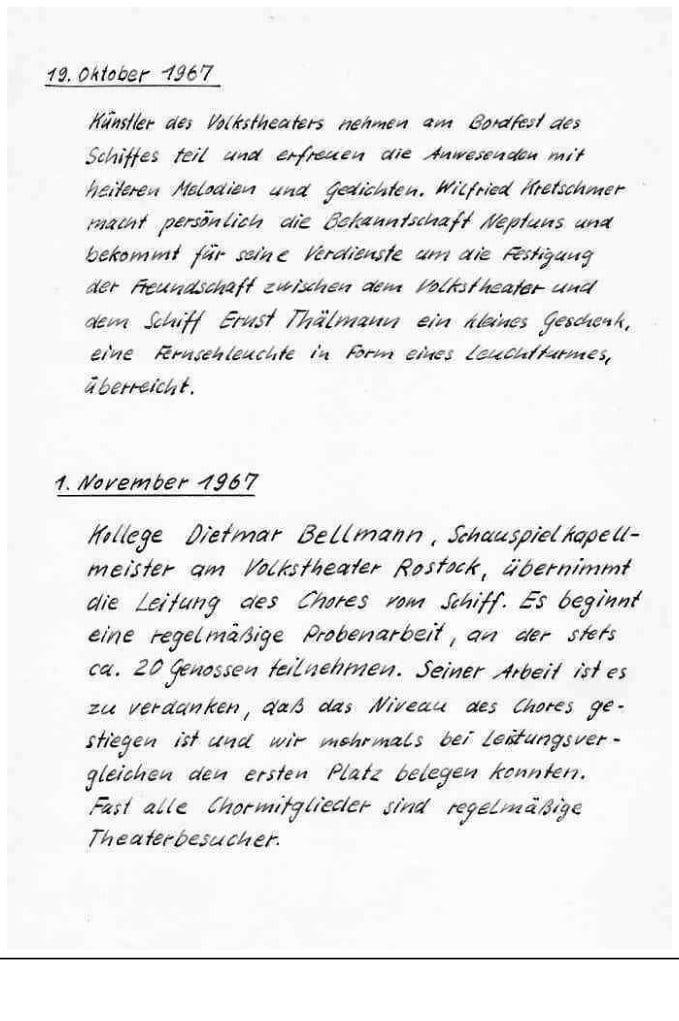 19. Oktober 1967
Künstler des Volkstheaters nehmen am Bordfest des
Schiffes teil und erfreuen die Anwesenden mit
heiteren Melodien und Gedichten. Wilfried Kretschmer
macht persönlich die Bekanntschaft Neptuns und
bekommt für seine Verdienste um die Festigung
der Freundschaft zwischen dem Volkstheater und
dem Schiff Ernst Thälmann ein kleines Geschenk,
eine Fernsehleuchte in Form eines Leuchtturmes,
überreicht.
1. November 1967
Kollege Dietmar Bellmann, Schauspielkapell-
meister am Volkstheater Rostock, übernimmt
die Leitung des Chores vom Schiff. Es beginnt
eine regelmäßige Probenarbeit, an der stets
ca. 20 Genossen teilnehmen. Seiner Arbeit ist es
zu verdanken, daß das Niveau des Chores ge-
stiegen ist und wir mehrmals bei Leistungsver-
gleichen den ersten Platz belegen konnten.
Fast alle Chormitglieder sind regelmäßige
Theaterbesucher.